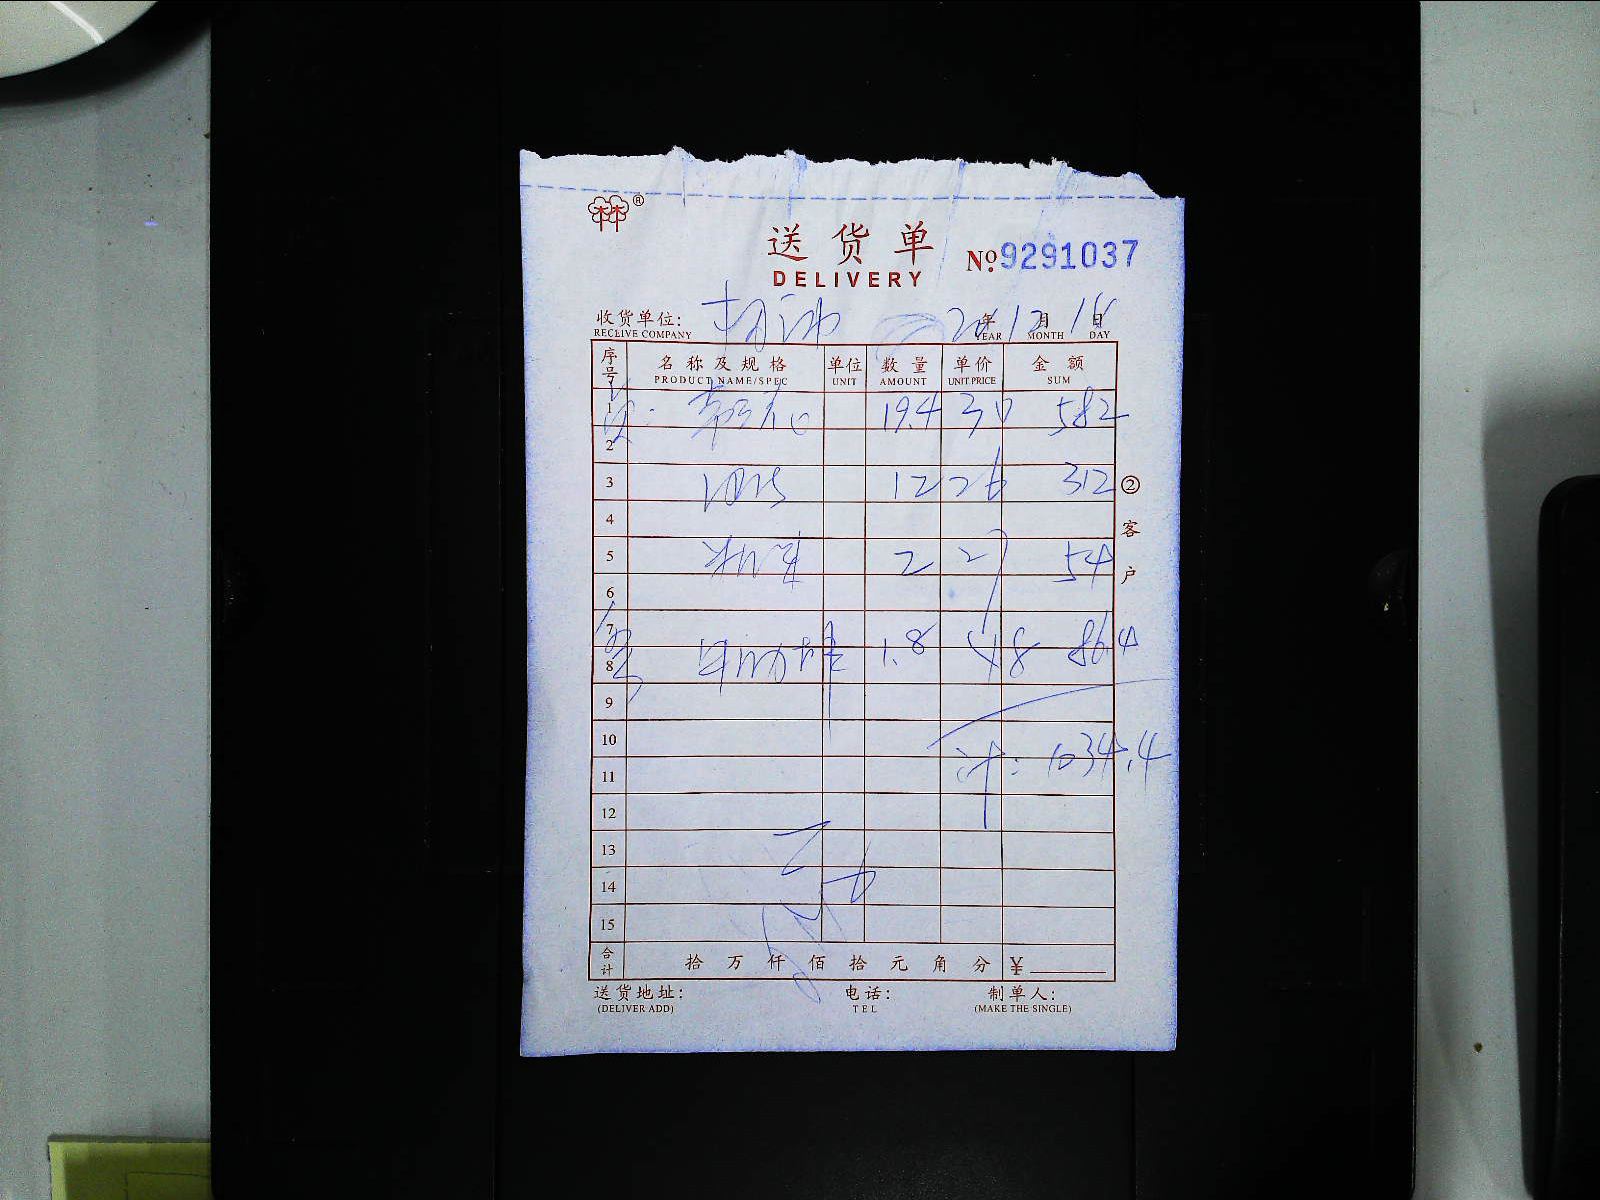 林®
送货单 №9291037
DELIVERY
收货单位: 年 12月 日
RECEIVE COMPANY YEAR MONTH DAY
序号 名称及规格 单位 数量 单价 金额
PRODUCT NAME/SPEC UNIT AMOUNT UNIT.PRICE SUM
1 19.4 30 582
2
3 12 26 312
②客户
4
5 2 27 54
6
7
8 1.8 48 86.4
9
10
11 计: 1034.4
12
13
14
15
合计 拾 万 仟 佰 拾 元 角 分 ¥
送货地址: 电话: 制单人:
(DELIVER ADD) TEL (MAKE THE SINGLE)